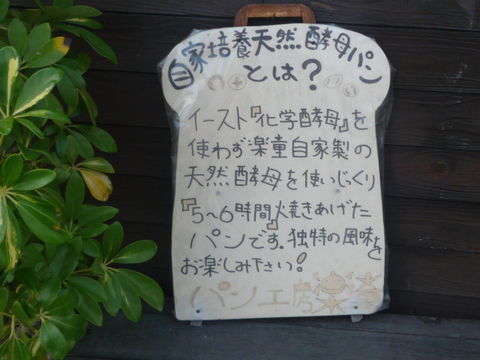 自家培養天然酵母パン
とは?
イースト『化学酵母』を
使わず楽童自家製の
天然酵母を使いじっくり
『5〜6時間』焼きあげた
パンです。独特の風味を
お楽しみ下さい!
パン工房